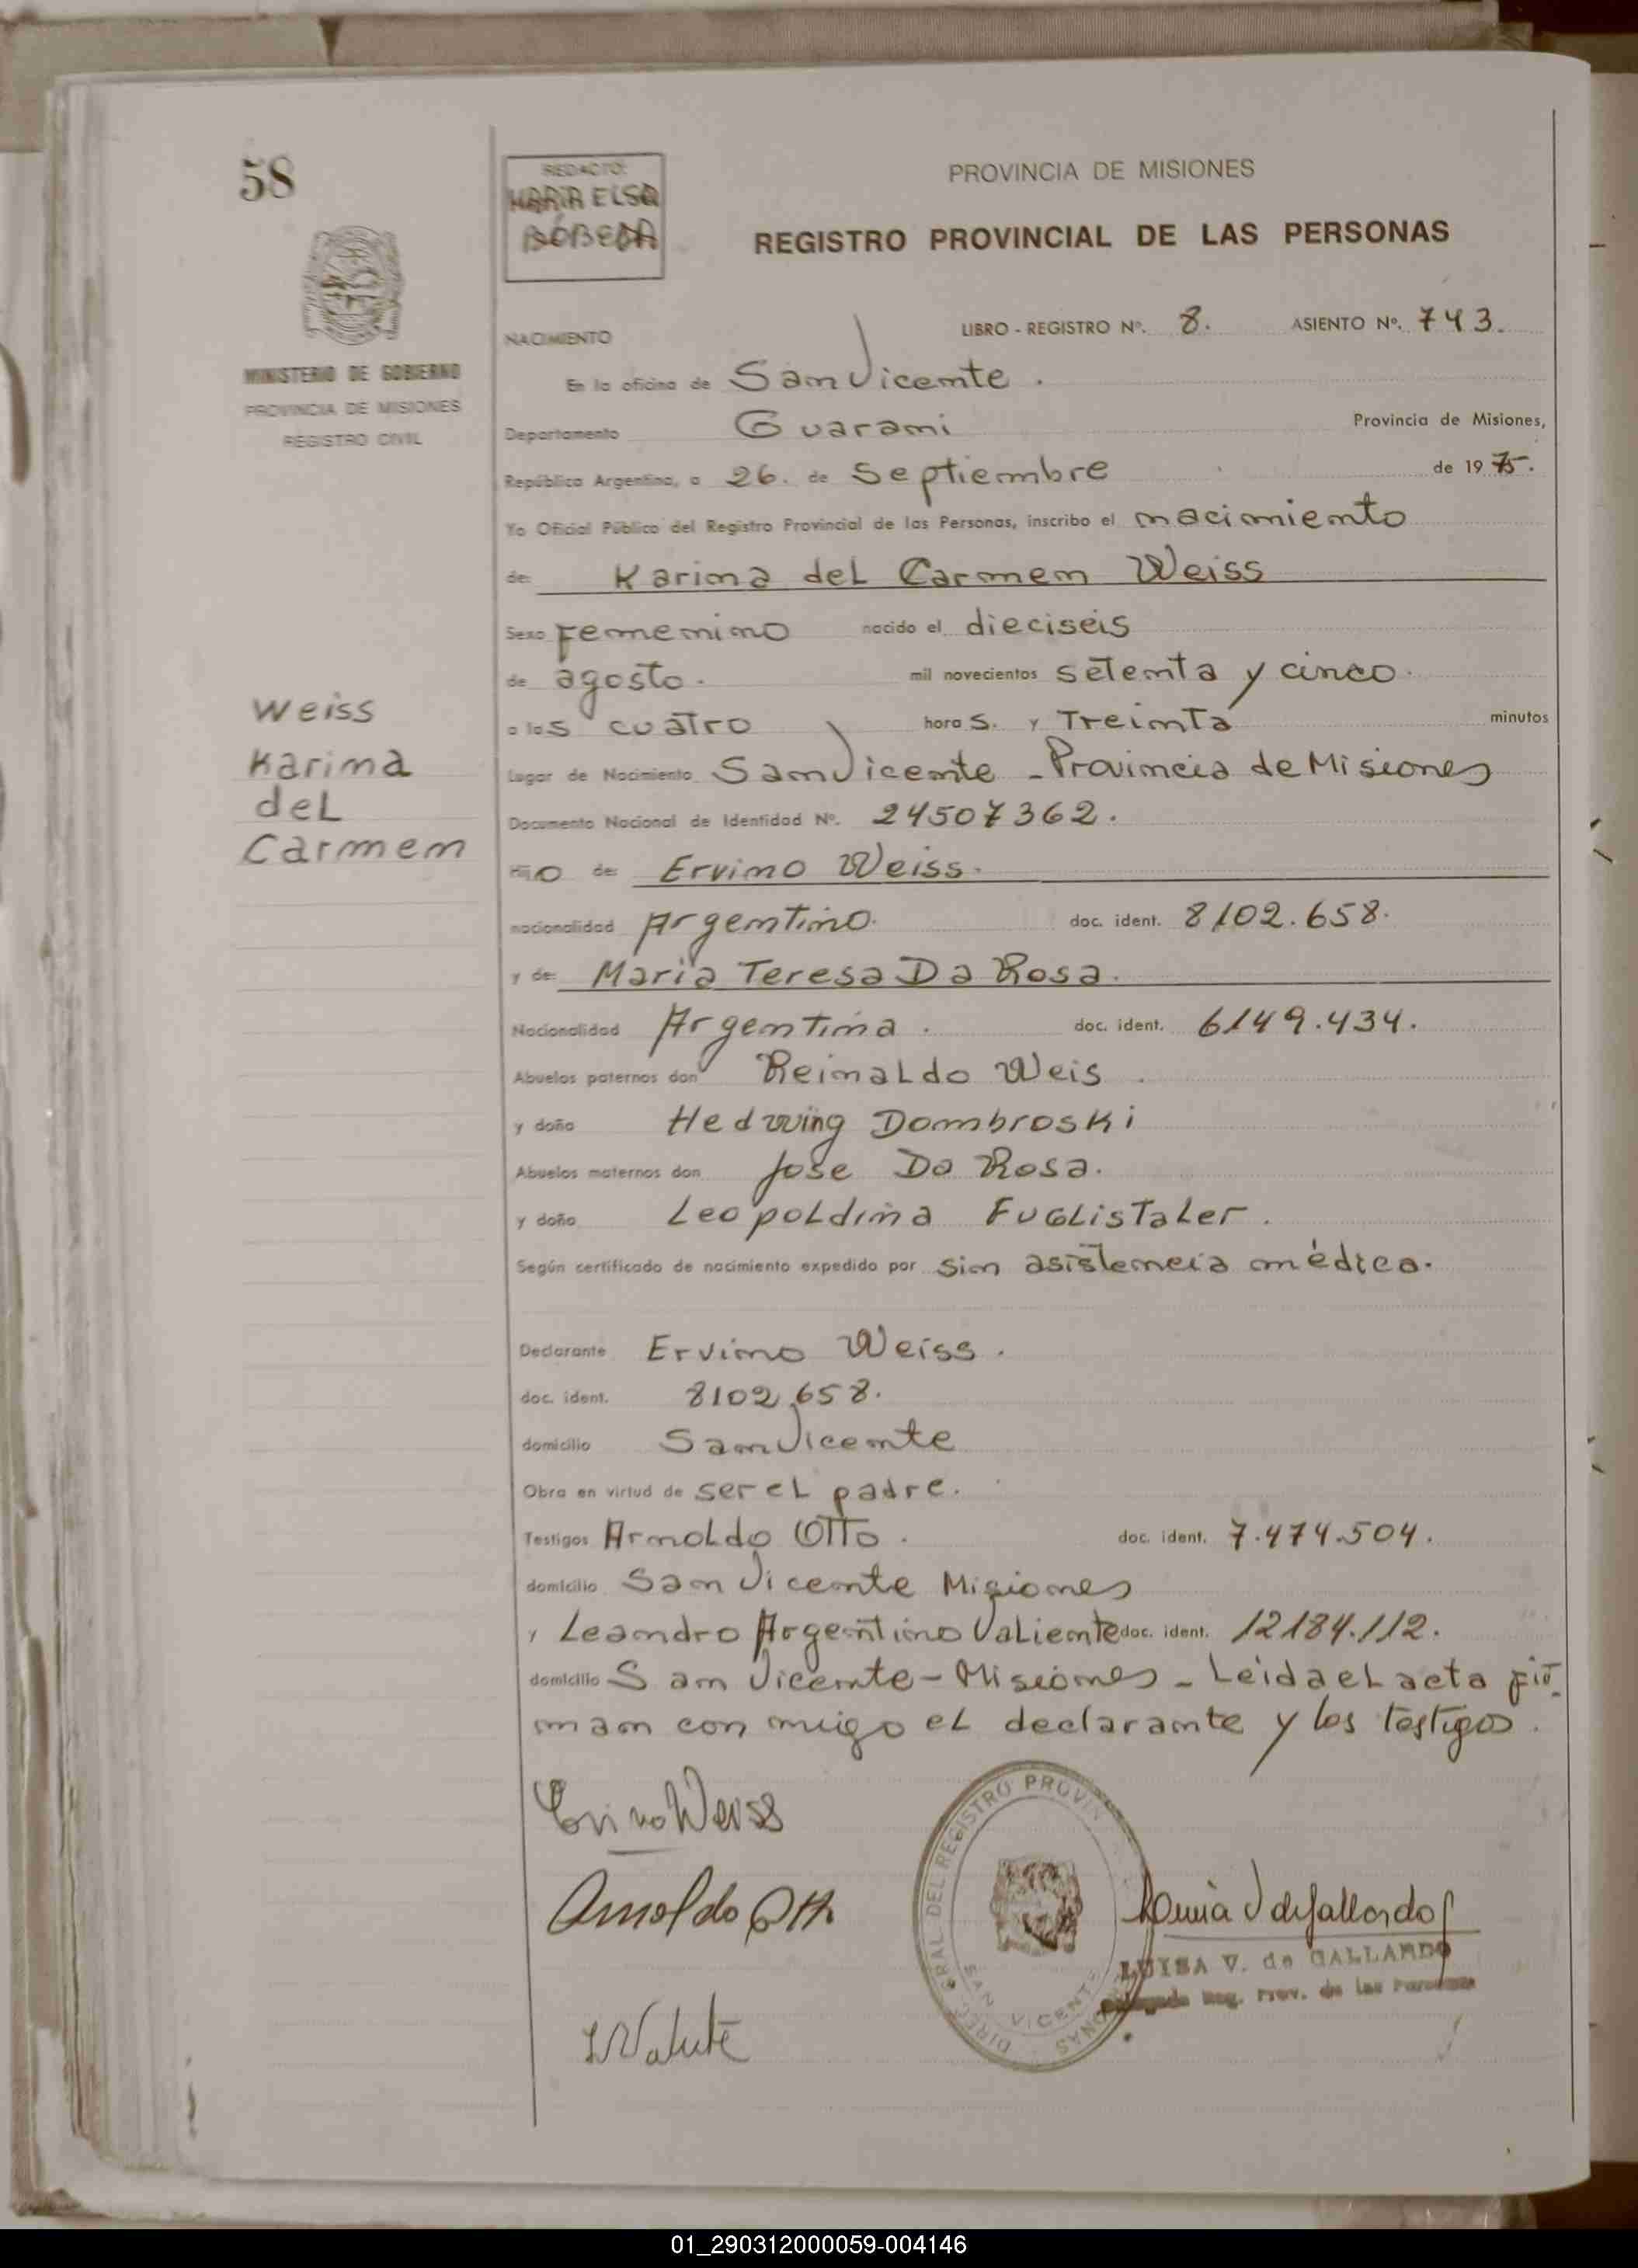 58
REDACTO:
MARIA ELSA
BÓBEDA
PROVINCIA DE MISIONES
REGISTRO PROVINCIAL DE LAS PERSONAS
MINISTERIO DE GOBIERNO
PROVINCIA DE MISIONES
REGISTRO CIVIL
NACIMIENTO LIBRO - REGISTRO Nº. 8. ASIENTO Nº. 743.
En la oficina de San Vicente.
Departamento Guarani Provincia de Misiones,
República Argentina, a 26. de Septiembre de 1975.
Yo Oficial Público del Registro Provincial de las Personas, inscribo el nacimiento
de: Karina del Carmen Weiss
Sexo Femenino nacido el dieciseis
de agosto. mil novecientos setenta y cinco.
a las cuatro horas. y Treinta minutos
Weiss
Karina
del
Carmen
Lugar de Nacimiento San Vicente - Provincia de Misiones
Documento Nacional de Identidad Nº. 24507362.
Hijo de: Ervino Weiss.
nacionalidad Argentino. doc. ident. 8102.658.
y de: Maria Teresa Da Rosa.
Nacionalidad Argentina. doc. ident. 6149.434.
Abuelos paternos don Reinaldo Weis.
y doña Hedwing Dombroski
Abuelos maternos don Jose Da Rosa.
y doña Leopoldina Fuglistaler.
Según certificado de nacimiento expedido por sin asistencia médica.
Declarante Ervino Weiss.
doc. ident. 8102.658.
domicilio San Vicente
Obra en virtud de ser el padre.
Testigos Arnoldo Otto. doc. ident. 7.474.504.
domicilio San Vicente Misiones
y Leandro Argentino Valiente doc. ident. 12184.112.
domicilio San Vicente - Misiones - Leida el acta fir-
man con migo el declarante y los testigos.
Ervino Weiss
Arnoldo Otto
DIREC. GRAL. DEL REGISTRO PROVIN
SAN VICENTE
LUISA V. de GALLARDO
Delegada Reg. Prov. de las Personas
01_290312000059-004146